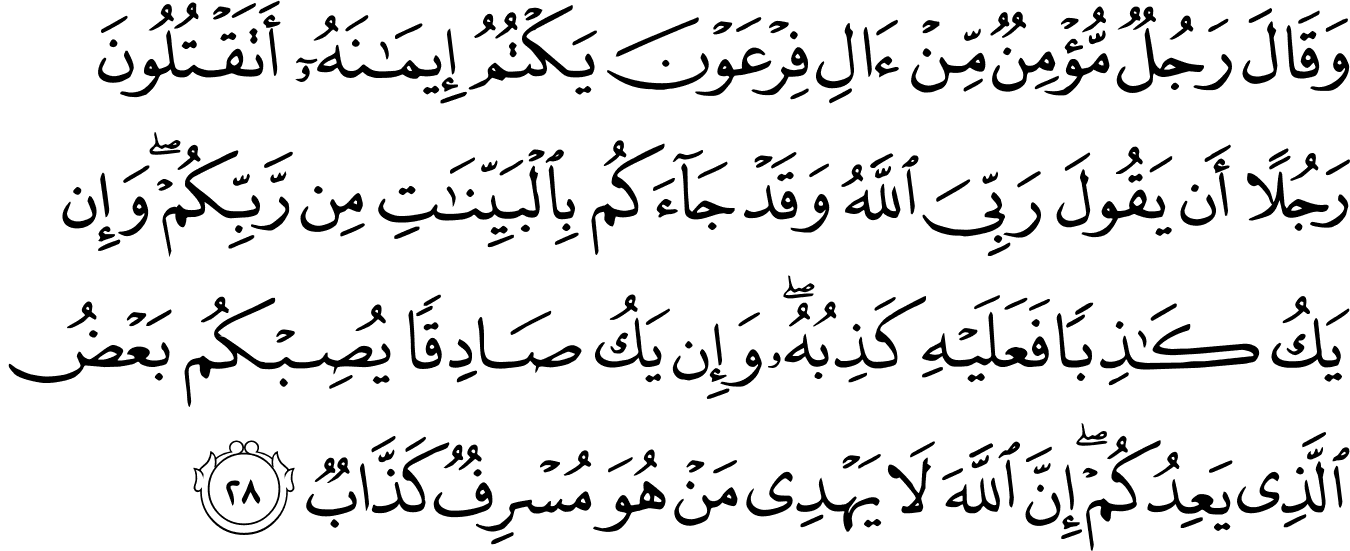 وَقَالَ رَجُلٌ مُّؤْمِنٌ مِّنْ ءَالِ فِرْعَوْنَ يَكْتُمُ إِيمَـٰنَهُۥٓ أَتَقْتُلُونَ
رَجُلًا أَن يَقُولَ رَبِّىَ ٱللَّهُ وَقَدْ جَآءَكُم بِٱلْبَيِّنَـٰتِ مِن رَّبِّكُمْ ۖ وَإِن
يَكُ كَـٰذِبًا فَعَلَيْهِ كَذِبُهُۥ ۖ وَإِن يَكُ صَادِقًا يُصِبْكُم بَعْضُ
ٱلَّذِى يَعِدُكُمْ ۖ إِنَّ ٱللَّهَ لَا يَهْدِى مَنْ هُوَ مُسْرِفٌ كَذَّابٌ ٢٨